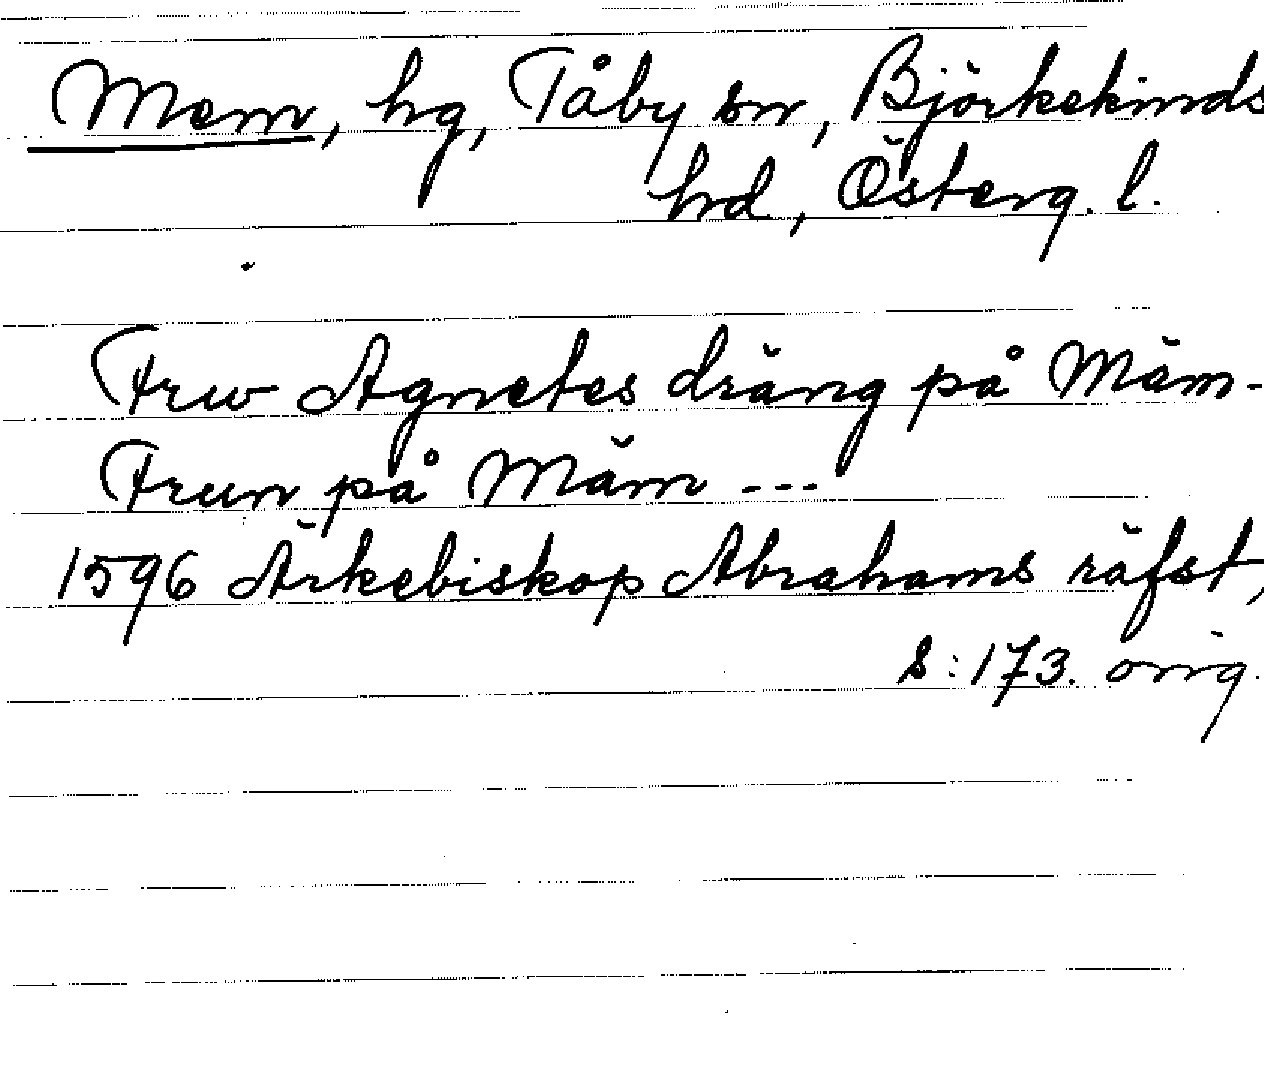 Mem, hg, Tåby sn, Björkekinds
hd, Österg. l.
Frw Agnetes dräng på Mäm-
Frun på Mäm ---
1596 Ärkebiskop Abrahams räfst,
s: 173. orig.